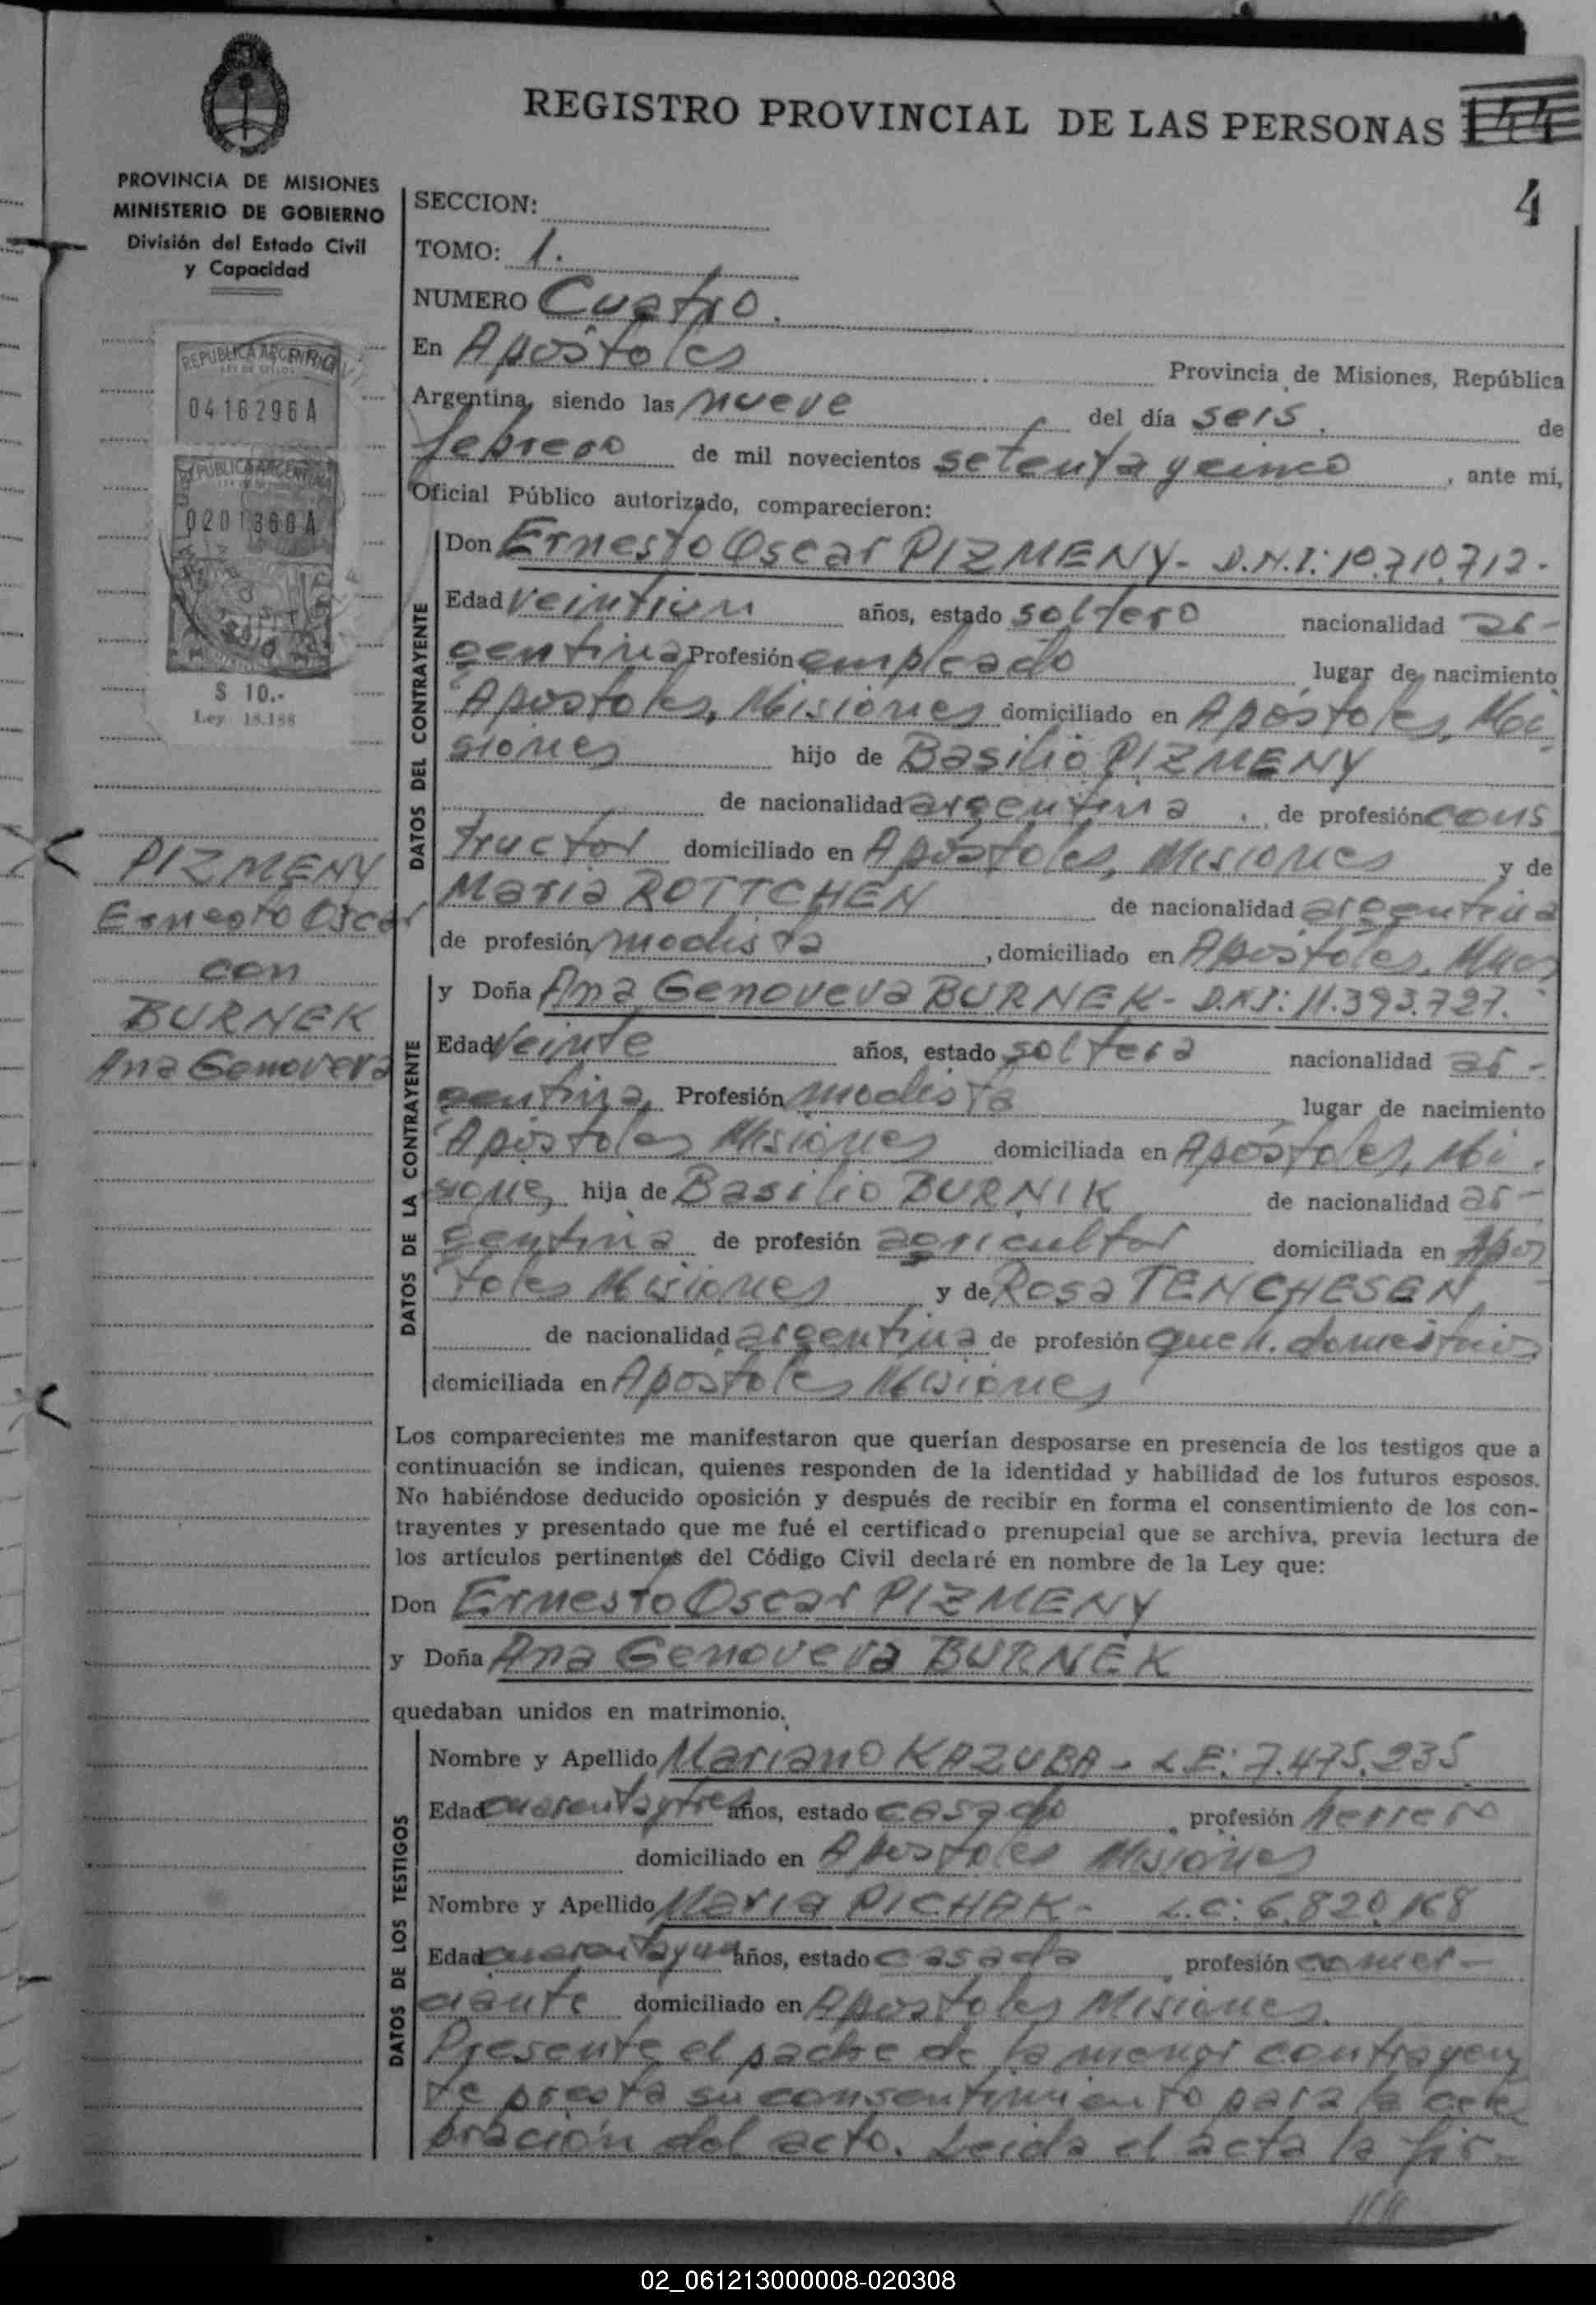 REGISTRO PROVINCIAL DE LAS PERSONAS 144
4
PROVINCIA DE MISIONES
MINISTERIO DE GOBIERNO
División del Estado Civil
y Capacidad
REPUBLICA ARGENTINA
LEY DE SELLOS
0416296A
REPUBLICA ARGENTINA
0201360A
$ 10.-
Ley 18.188
PIZMENY
Ernesto Oscar
con
BURNEK
Ana Genoveva
SECCION:
TOMO: 1.
NUMERO Cuatro.
En Apóstoles Provincia de Misiones, República
Argentina, siendo las nueve del día seis, de
febrero de mil novecientos setenta y cinco, ante mi,
Oficial Público autorizado, comparecieron:
DATOS DEL CONTRAYENTE
Don Ernesto Oscar PIZMENY - D.N.I: 10.710.712.-
Edad veintiun años, estado soltero nacionalidad ar-
gentina Profesión empleado lugar de nacimiento
Apóstoles, Misiones domiciliado en Apóstoles, Mi-
siones hijo de Basilio PIZMENY
de nacionalidad argentina, de profesión cons
tructor domiciliado en Apóstoles, Misiones y de
Maria ROTTCHEN de nacionalidad argentina
de profesión modista, domiciliado en Apóstoles,
DATOS DE LA CONTRAYENTE
y Doña Ana Genoveva BURNEK - D.N.I: 11.393.727.-
Edad Veinte años, estado soltera nacionalidad ar-
gentina, Profesión modista lugar de nacimiento
Apóstoles Misiones domiciliada en Apóstoles, Mi-
siones, hija de Basilio BURNIK de nacionalidad ar-
gentina de profesión agricultor domiciliada en Apos
toles Misiones y de Rosa TENCHESEN,
de nacionalidad argentina de profesión queh. domesticos
domiciliada en Apóstoles Misiones
Los comparecientes me manifestaron que querían desposarse en presencia de los testigos que a
continuación se indican, quienes responden de la identidad y habilidad de los futuros esposos.
No habiéndose deducido oposición y después de recibir en forma el consentimiento de los con-
trayentes y presentado que me fué el certificado prenupcial que se archiva, previa lectura de
los artículos pertinentes del Código Civil declaré en nombre de la Ley que:
Don Ernesto Oscar PIZMENY
y Doña Ana Genoveva BURNEK
quedaban unidos en matrimonio.
DATOS DE LOS TESTIGOS
Nombre y Apellido Mariano KAZUBA - L.E: 7.475.235
Edad cuarentaytres años, estado casado, profesión herrero
domiciliado en Apóstoles Misiones
Nombre y Apellido Maria PICHAK - L.C: 6.820.168
Edad cuarentayun años, estado casada, profesión comer-
ciante domiciliado en Apóstoles Misiones.
Presente el padre de la menor contrayen
te presta su consentimiento para la cele
bración del acto. Leida el acta la fir-
02_061213000008-020308